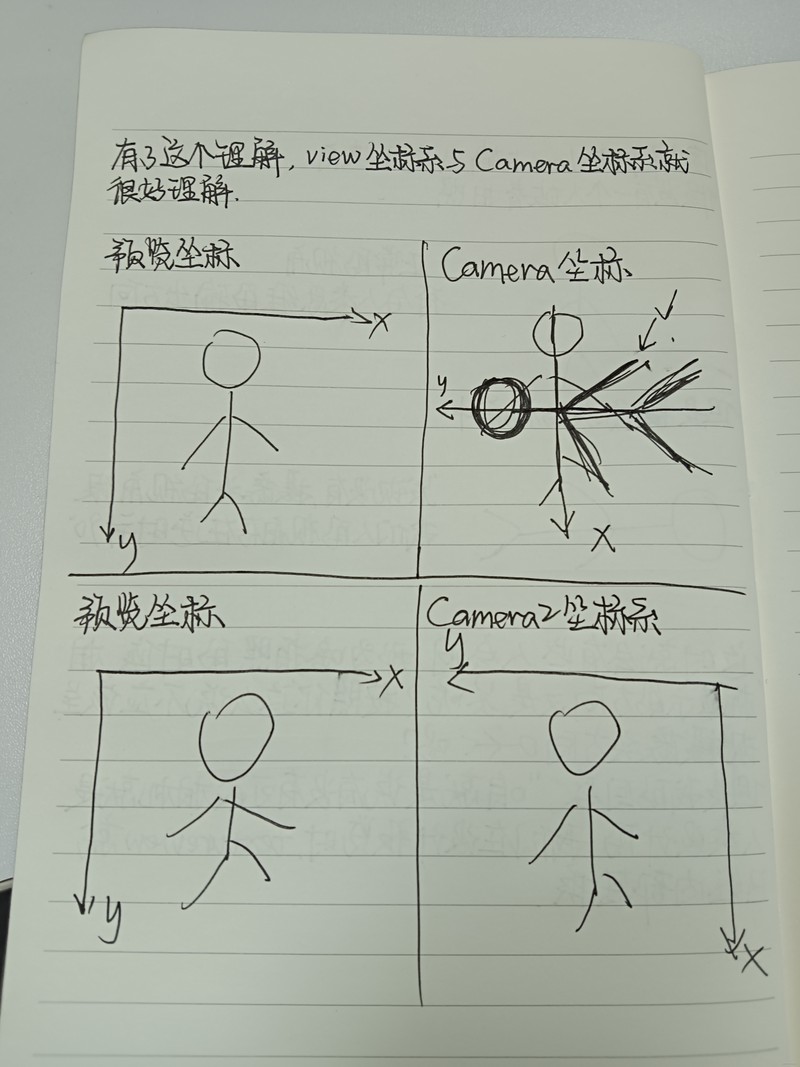 有了这个理解, view 坐标系与 Camera 坐标系就
很好理解.
预览坐标
Camera 坐标
x
y
y
x
预览坐标
Camera2 坐标系
x
y
y
x